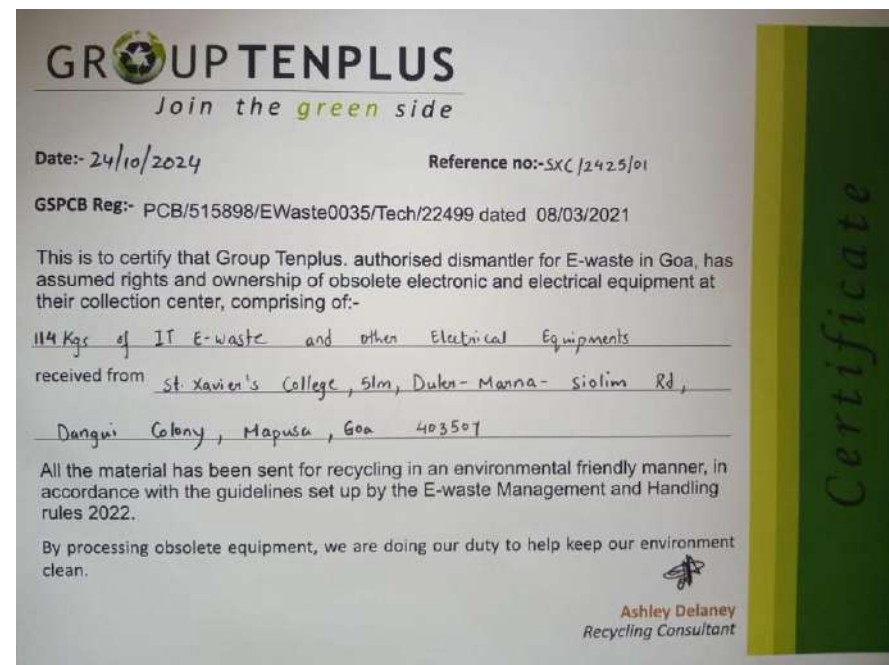 GROUP TENPLUS
Join the green side
Date:- 24/10/2024 Reference no:- SXC/2425/01
GSPCB Reg:- PCB/515898/EWaste0035/Tech/22499 dated 08/03/2021
This is to certify that Group Tenplus. authorised dismantler for E-waste in Goa, has
assumed rights and ownership of obsolete electronic and electrical equipment at
their collection center, comprising of:-
114 Kgs of IT E-waste and other Electrical Equipments
received from St. Xavier's College, 51m, Duler-Marna-Siolim Rd,
Dangui Colony, Mapusa, Goa 403507
All the material has been sent for recycling in an environmental friendly manner, in
accordance with the guidelines set up by the E-waste Management and Handling
rules 2022.
By processing obsolete equipment, we are doing our duty to help keep our environment
clean.
Ashley Delaney
Recycling Consultant
Certificate